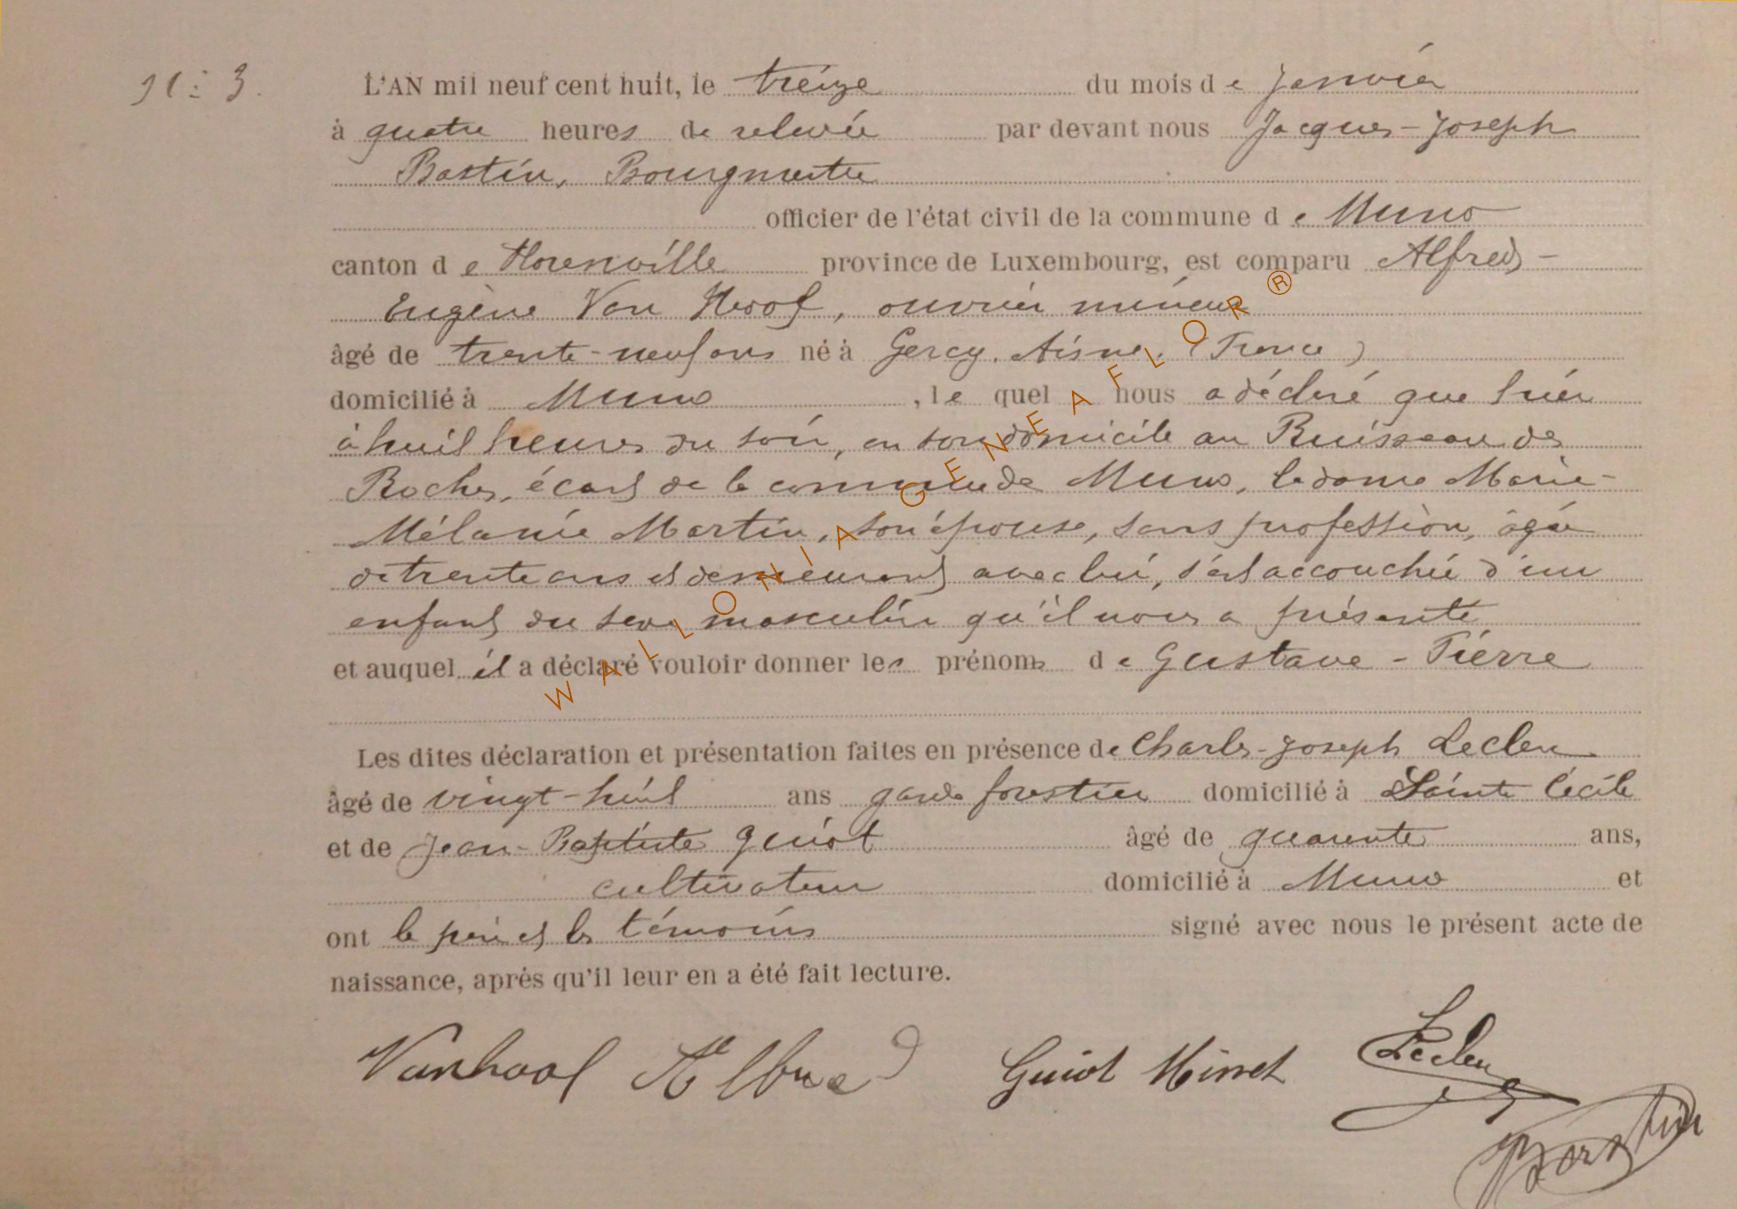 N° 3.
L'AN mil neuf cent huit, le treize du mois de Janvier
à quatre heures de relevée par devant nous Jacques-Joseph
Bastin, Bourgmestre
officier de l'état civil de la commune de Muno
canton de Florenville province de Luxembourg, est comparu Alfred-
Eugène Van Hoof, ouvrier mineur
âgé de trente-neuf ans né à Gercy, Aisne, (France)
domicilié à Muno, lequel nous a déclaré que hier
à huit heures du soir, en son domicile au Ruisseau des
Roches, écart de la commune de Muno, la dame Marie-
Mélanie Martin, son épouse, sans profession, âgée
de trente ans et demeurant avec lui, s'est accouchée d'un
enfant du sexe masculin qu'il nous a présenté
et auquel il a déclaré vouloir donner les prénoms de Gustave-Pierre
Les dites déclaration et présentation faites en présence de Charles-Joseph Leclere
âgé de vingt-huit ans garde forestier domicilié à Sainte Cécile
et de Jean-Baptiste Guiot âgé de quarante ans,
cultivateur domicilié à Muno et
ont le père et les témoins signé avec nous le présent acte de
naissance, après qu'il leur en a été fait lecture.
Vanhoof Guiot Leclere
Bastin
WALLONIA GENEAFLOR ®